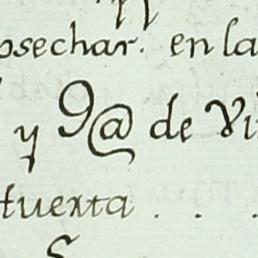 osechar. en la
y 9@ de Vi
tuerta . . .